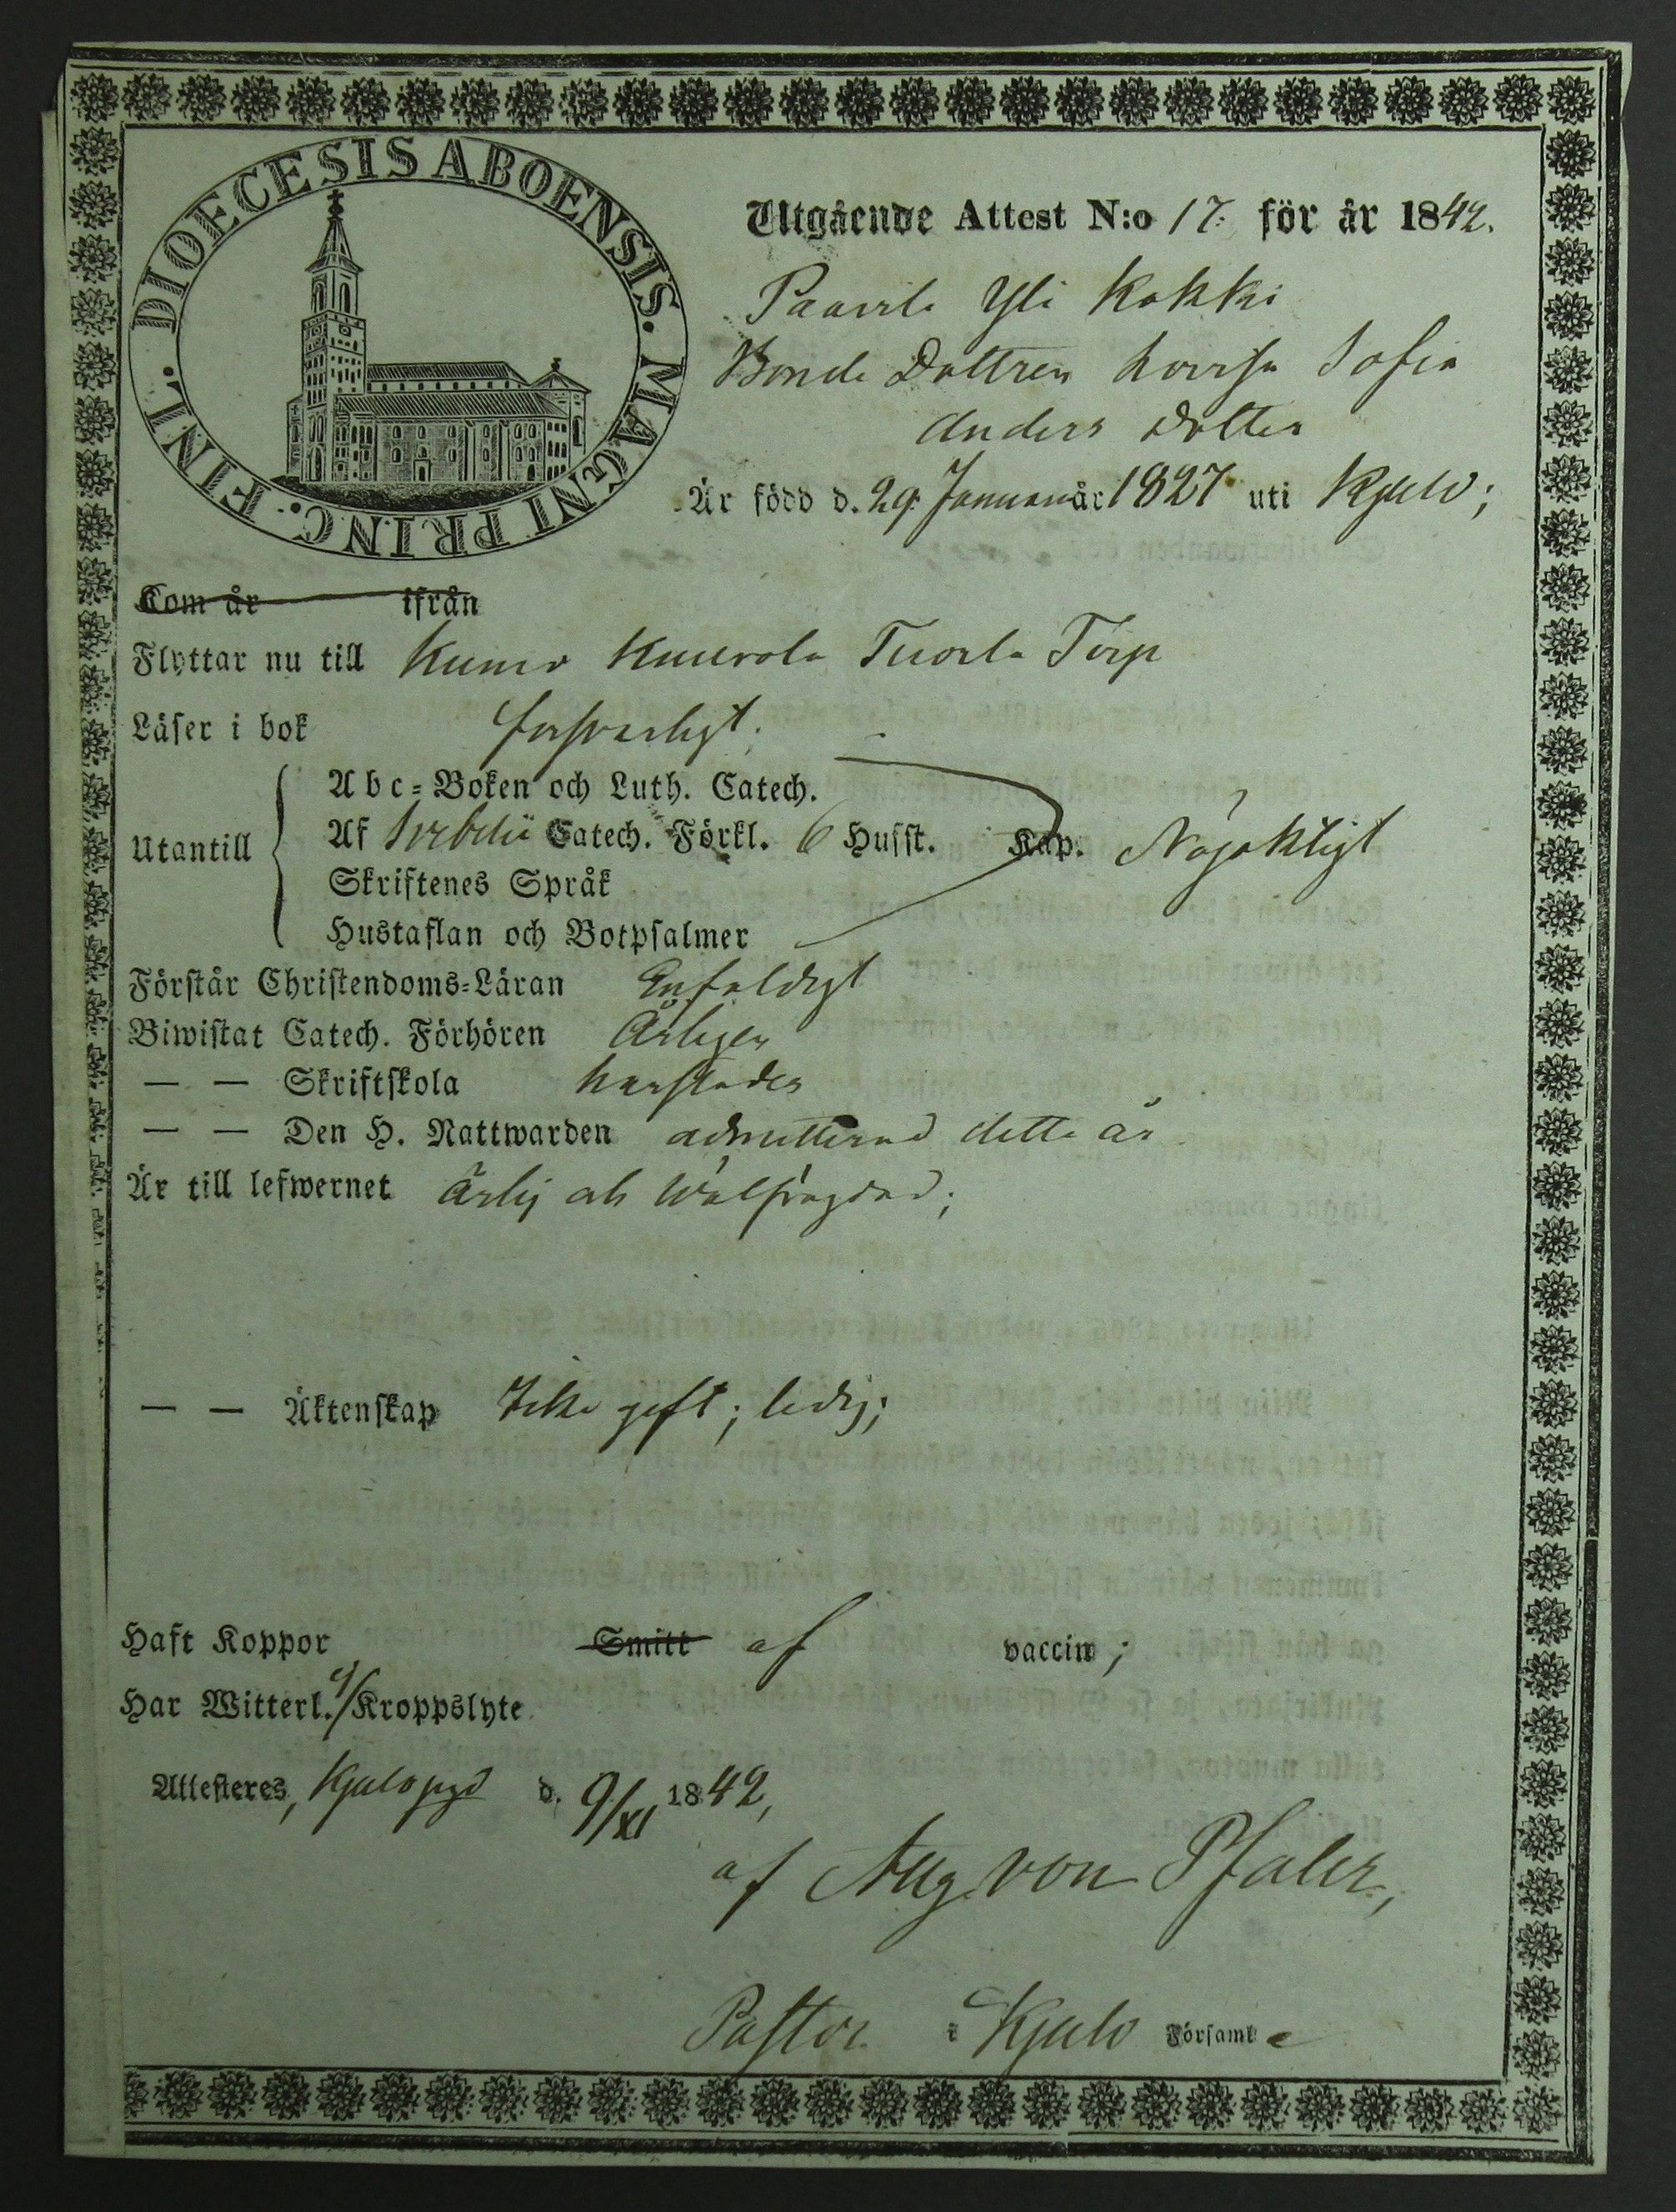 DIOECESIS ABOENSIS. MAGNI PRINC. FINL.
Utgående Attest N:o 17. för år 1842.
Paavila Yli Kokki
Bonde Dottren Lovisa Sofia
Anders Dotter
Är född d. 29 Januari år 1827 uti Kjulo;
Kom år ifrån
Flyttar nu till Kumo Kuurola Tuorla Torp
Läser i bok försvarligt.
Utantill
Abc-Boken och Luth. Catech.
Af Svebelii Catech. Förkl. 6 Husst. Kap. Nöjaktligt
Skriftenes Språk
Hustaflan och Botpsalmer
Förstår Christendoms-Läran Enfaldigt
Biwistat Catech. Förhören Årligen
— — Skriftskola härstädes
— — Den H. Nattwarden admitterad detta år
Är till lefwernet ärlig och wälfrägdad;
— — Äktenskap Icke gift; ledig;
Haft Koppor Smitt af vaccin;
Har Witterl. ej Kroppslyte
Attesteres, Kjulo pgd d. 9/XI 1842,
af Aug. von Pfaler,
Pastor i Kjulo Församl